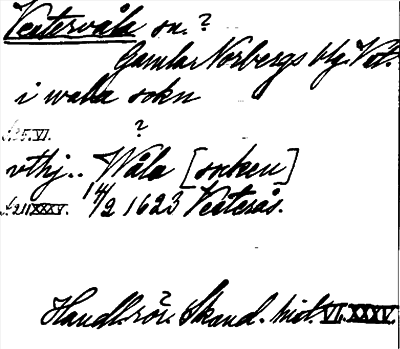 Vestervåla sn. ?
Gamla Norbergs blg. Vst.
i wala sokn
S. 5. VI.
?
vthj.. Wåla [socken]
14/2 1623 Vesterås.
XXXV.
Handl. rör. Skand. hist. VI. XXXV.